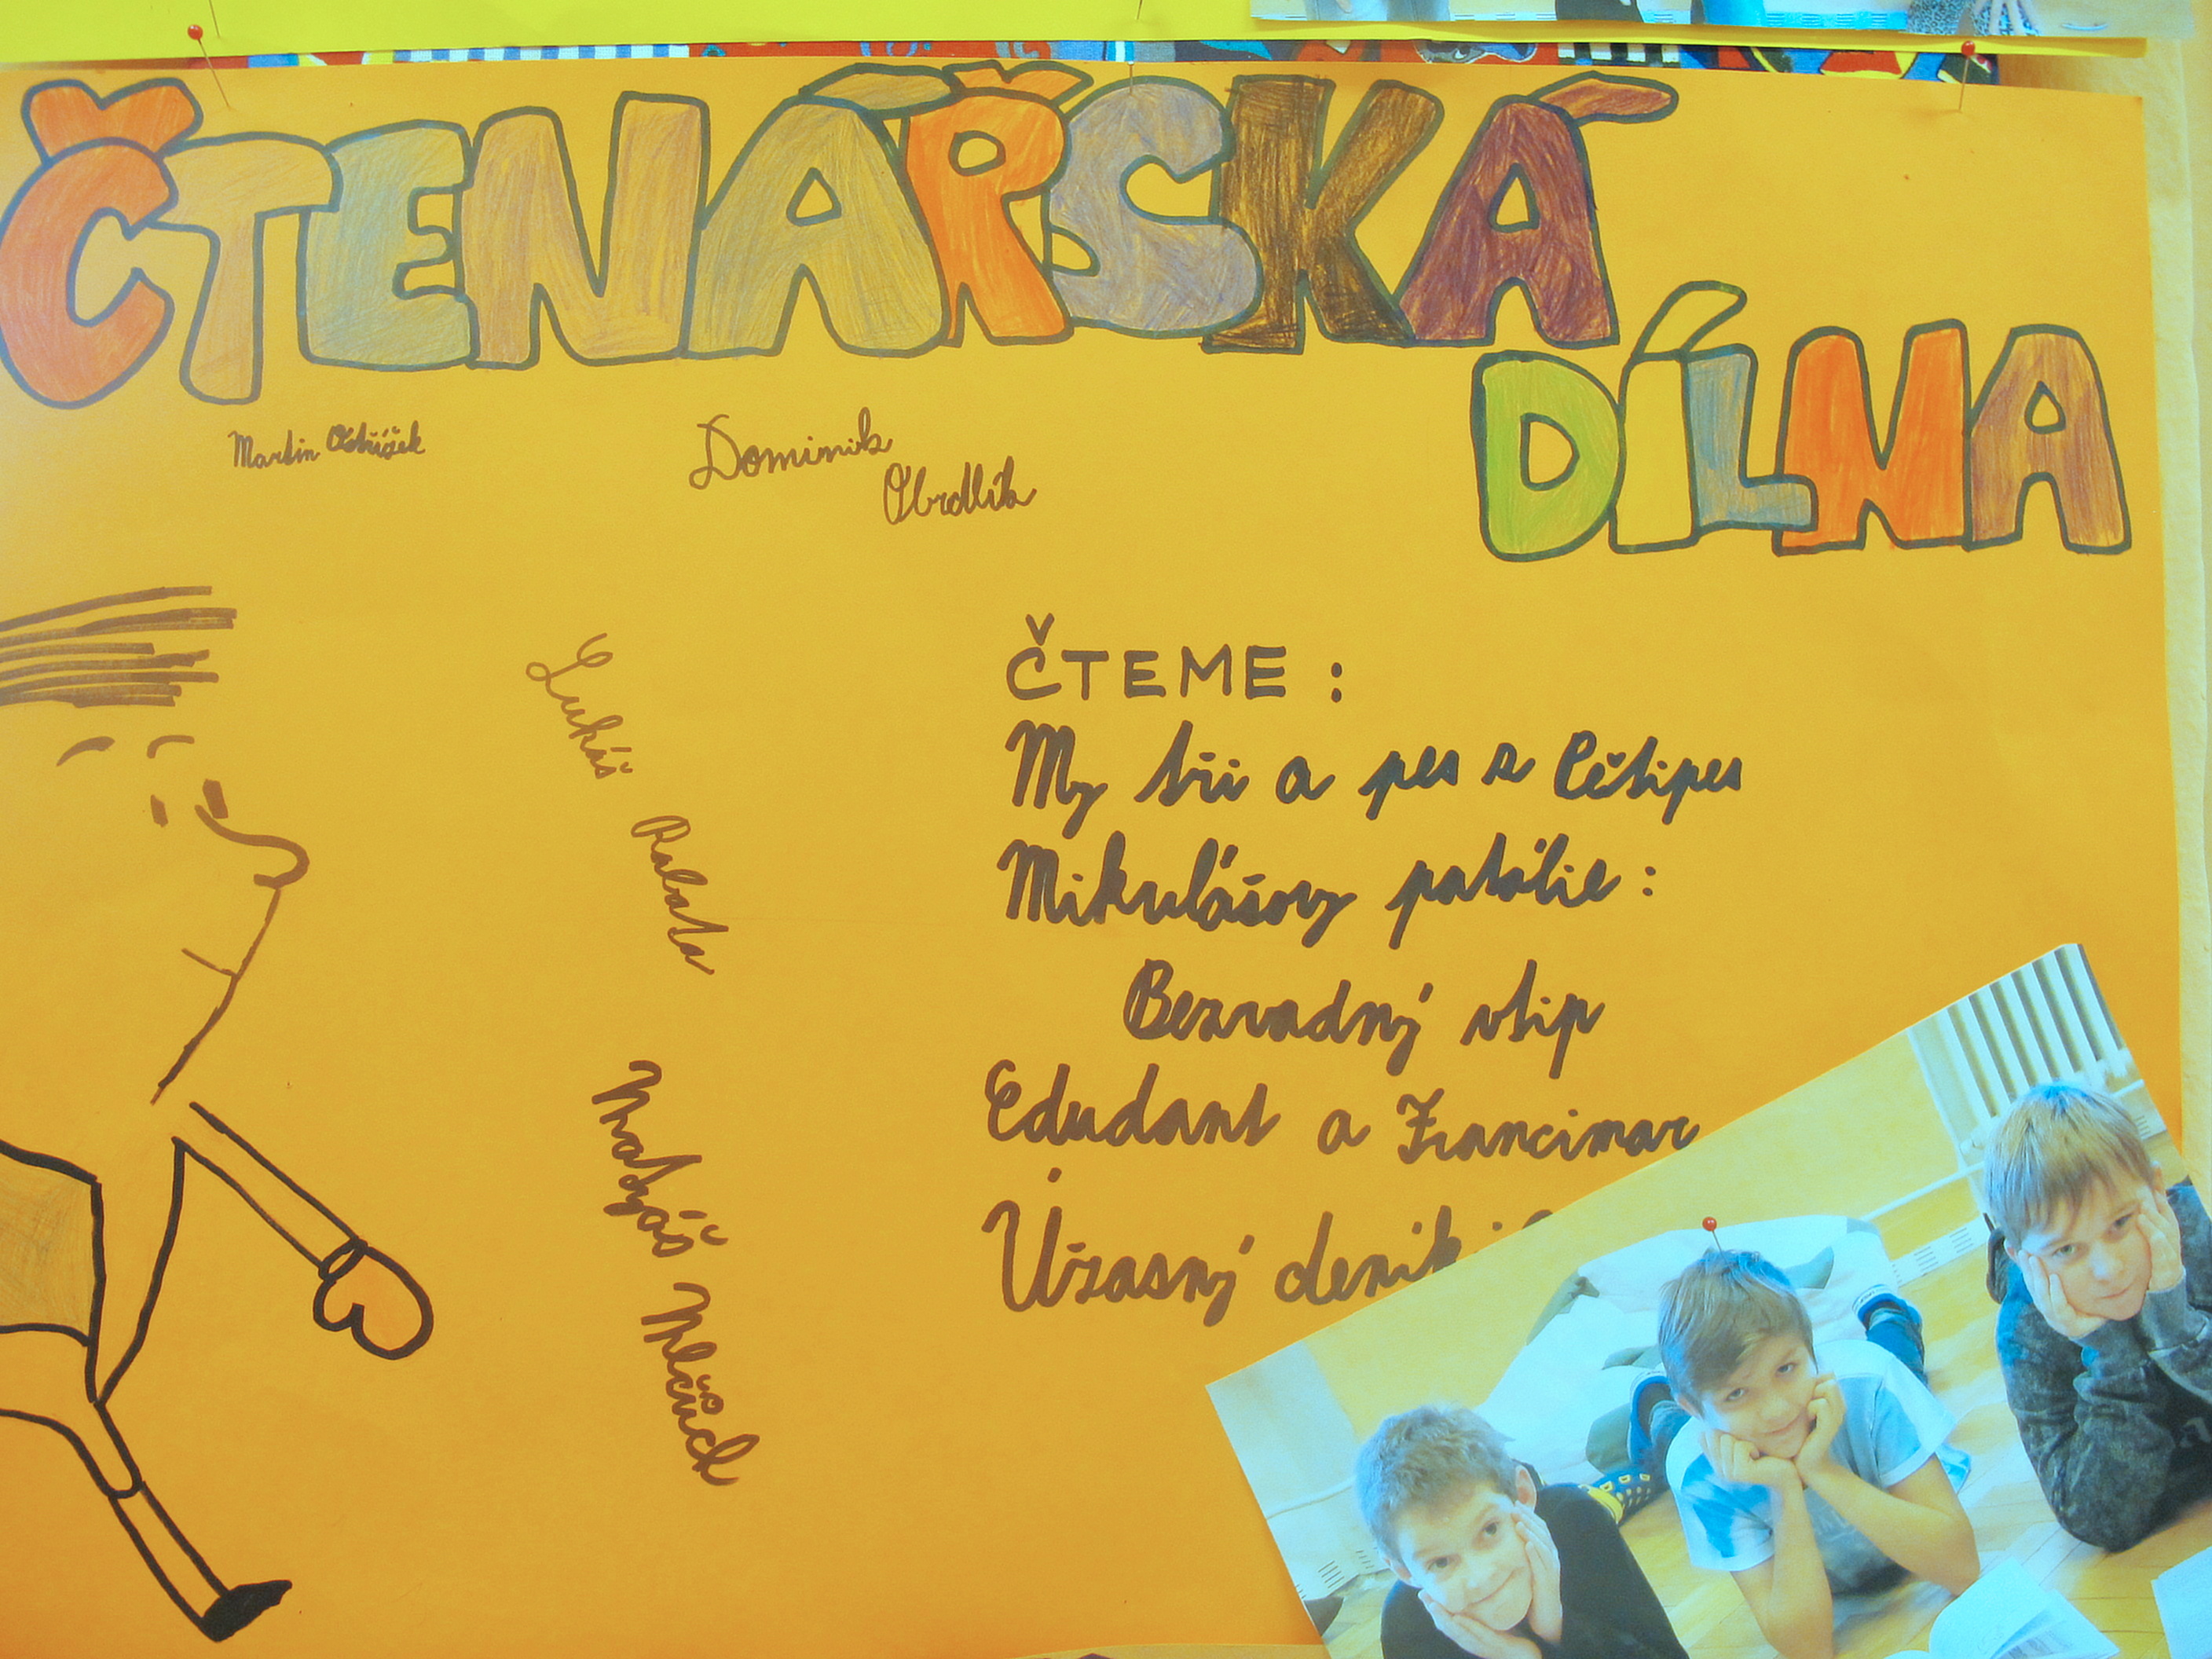 ČTENÁŘSKÁ
DÍLNA
Martin
Dominik
Obrdlík
Lukáš
Rabata
Matyáš
Mlčůch
ČTEME :
My tři a pes z Pětipes
Mikulášovy patálie :
Bezvadný vtip
Edudant a Francimor
Úžasný deník